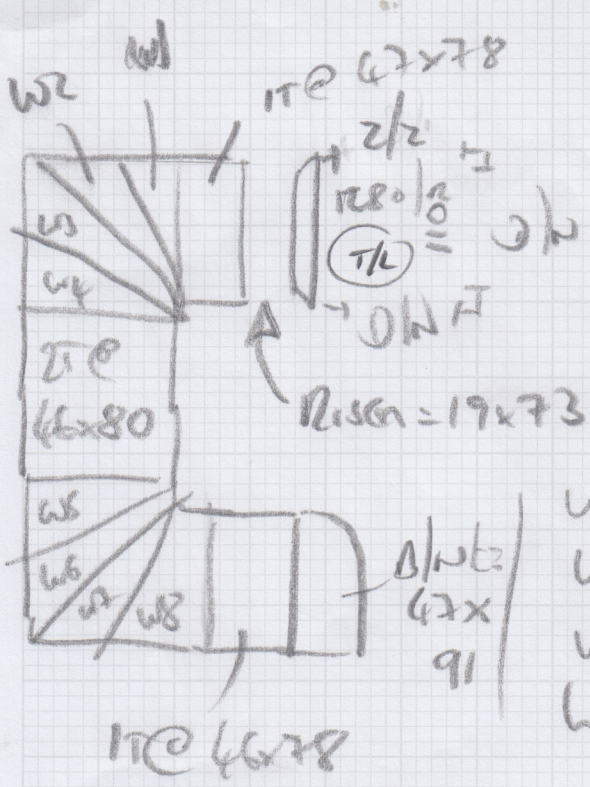 W2
W1
1T@ 47x78
2/2
T/L
W3
W4
2T@
46x80
Riser = 19x73
W5
W6
W7
W8
B/N@
47x
91
1T@ 46x78